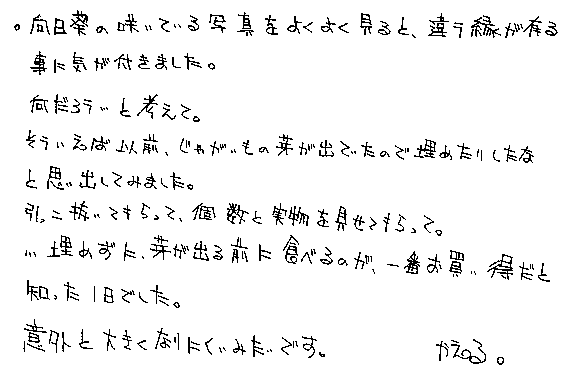 。向日葵の咲いている写真をよくよく見ると、違う緑が有る
事に気が付きました。
何だろう…と考えて。
そういえば以前、じゃがいもの芽が出ていたので埋めたりしたな
と思い出してみました。
引っこ抜いてもらって、個数と実物を見せてもらって。
… 埋めずに、芽が出る前に食べるのが、一番お買い得だと
知った1日でした。
意外と大きくなりにくいみたいです。 かえる。